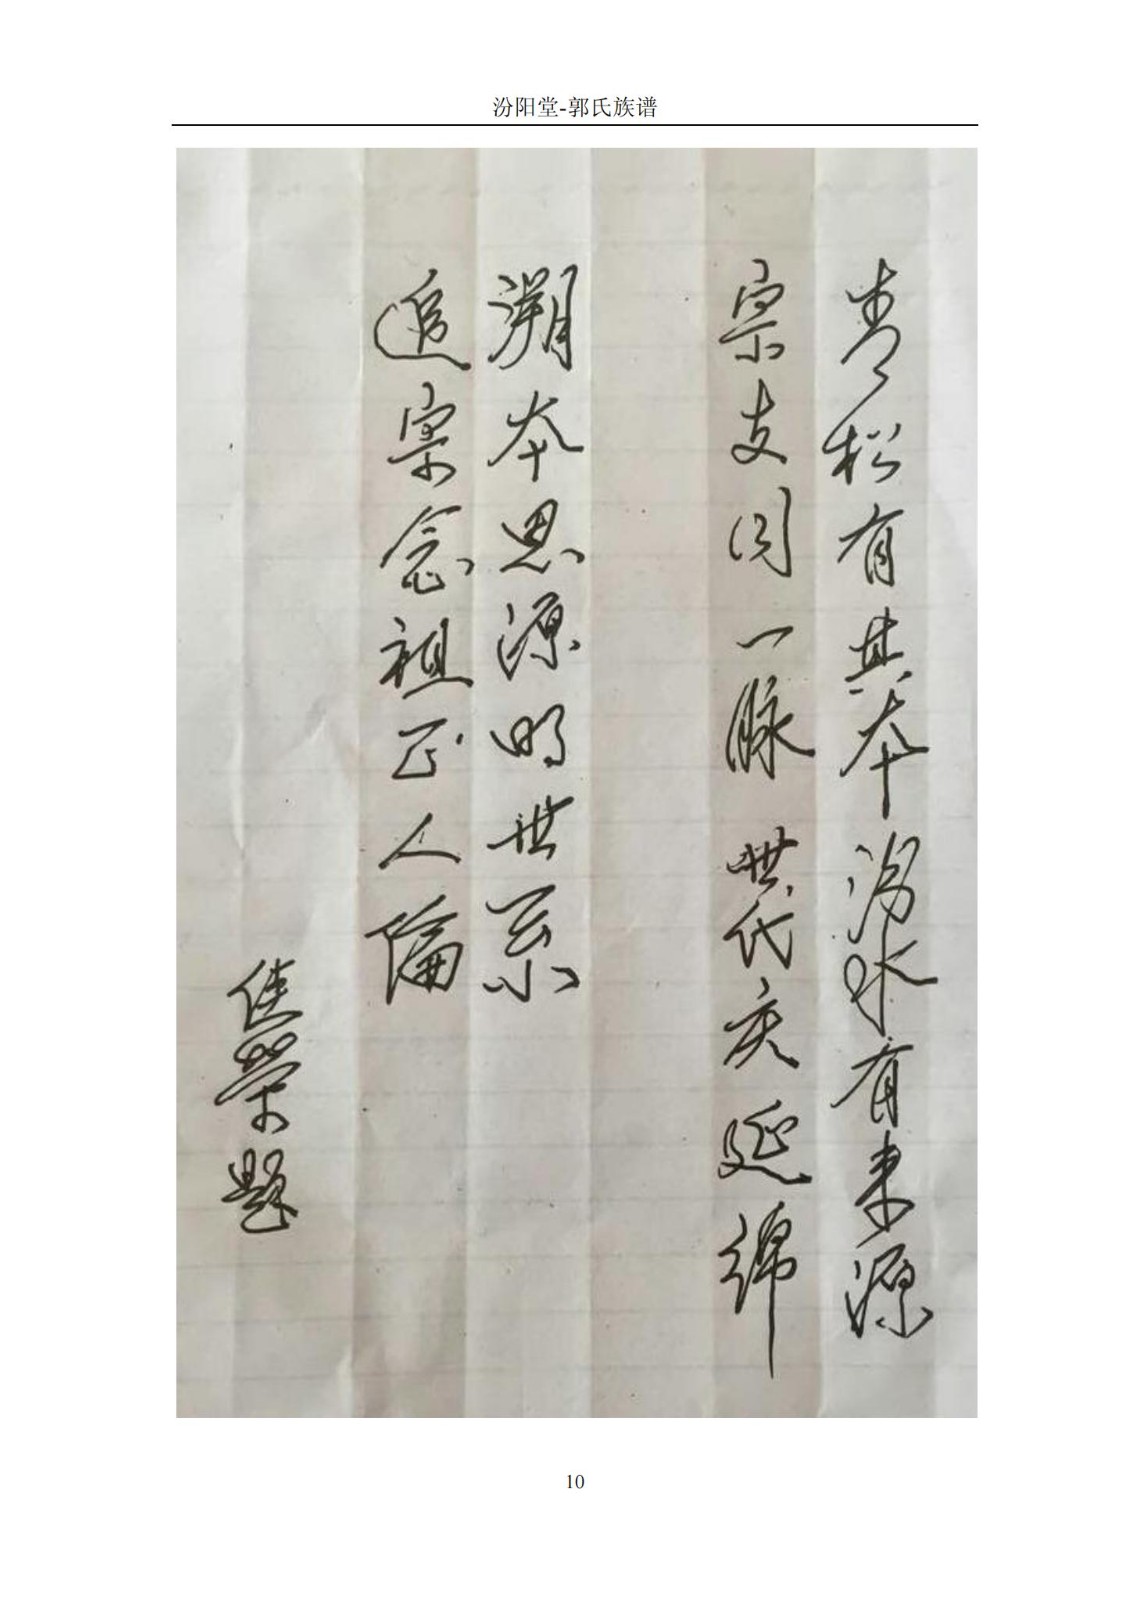 汾阳堂-郭氏族谱
青松有其本汾水有来源
宗支同一脉世代庆延绵
溯本思源明世系
追宗念祖正人伦
佳荣题
10